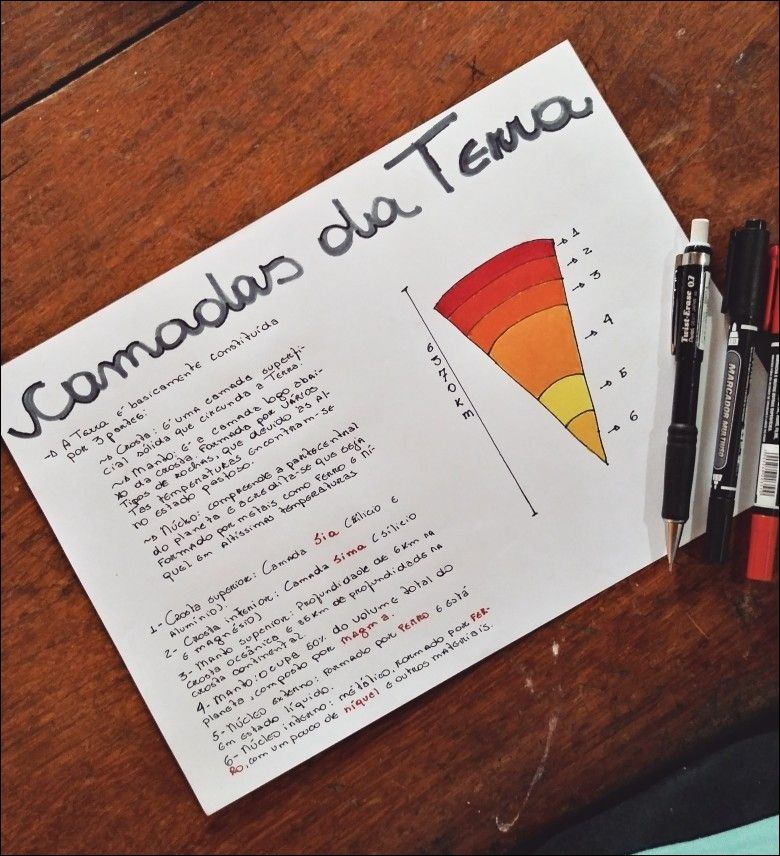 Camadas da Terra
→ A Terra é basicamente constituída
por 3 partes:
→ Crosta: é uma camada superfi-
cial sólida que circunda a Terra.
→ Manto: é a camada logo abai-
xo da crosta. Formada por vários
tipos de rochas, que devido às al-
tas temperaturas encontram-se
no estado pastoso.
→ Núcleo: compreende a parte central
do planeta e acredita-se que seja
formado por metais como ferro e ní-
quel em altíssimas temperaturas
1- Crosta superior: Camada Sia (Silício e
Alumínio).
2- Crosta inferior: Camada Sima (Silício
e magnésio)
3- Manto superior: Profundidade de 6km na
crosta oceânica e 35km de profundidade na
crosta continental.
4- Manto: Ocupa 80% do volume total do
planeta, composto por magma.
5- Núcleo externo: Formado por Ferro e está
em estado líquido.
6- Núcleo interno: metálico, formado por fer-
ro, com um pouco de níquel e outros materiais.
6370km
→ 1
→ 2
→ 3
→ 4
→ 5
→ 6
Twist-Erase 0.7
MARCADOR MULTIUSO